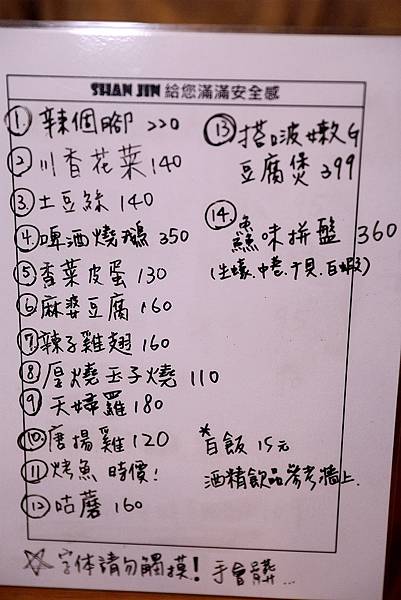 SHAN JIN 給您滿滿安全感
① 辣個腳 220
② 川香花菜 140
③ 土豆絲 140
④ 啤酒燒鵝 350
⑤ 香菜皮蛋 130
⑥ 麻婆豆腐 160
⑦ 辣子雞翅 160
⑧ 厚燒玉子燒 110
⑨ 天婦羅 180
⑩ 唐揚雞 120
⑪ 烤魚 時價!
⑫ 咕蘑 160
⑬ 搭啵嫩G
豆腐煲 399
⑭ 鱻味拼盤 360
(生蠔.中卷.干貝.白蝦)
*白飯 15元
酒精飲品參考牆上.
☆字体請勿觸摸! 手會髒...